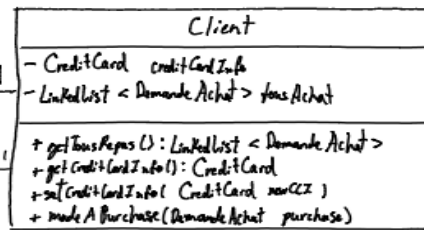 Client
- CreditCard creditCardInfo
- LinkedList < DemandeAchat > tousAchat
+ getTousRepas(): LinkedList < DemandeAchat >
+ getCreditCardInfo(): CreditCard
+ setCreditCardInfo( CreditCard newCCI )
+ madeAPurchase(DemandeAchat purchase)